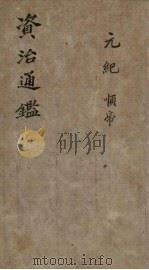 元紀 順帝
資治通鑑